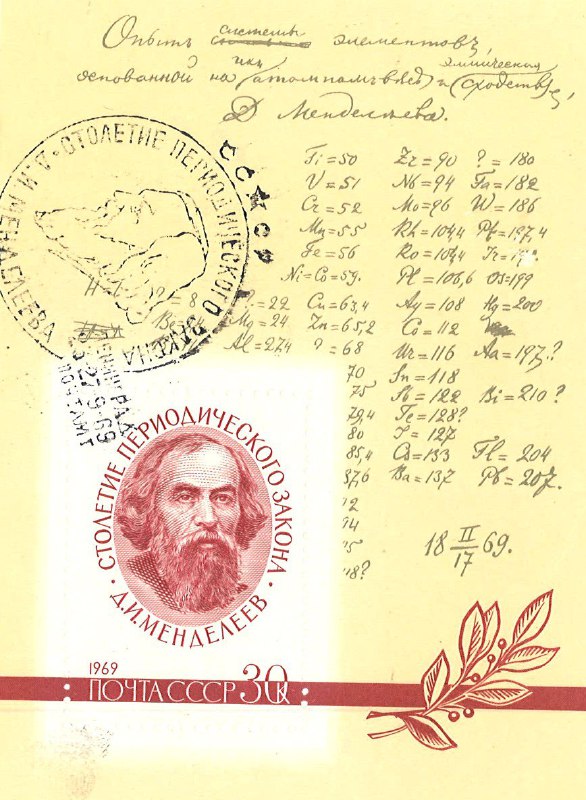 Опытъ системы элементовъ,
основанной на ихъ атомномъ вѣсѣ и химическомъ сходствѣ,
Д Менделѣева.
СТОЛЕТИЕ ПЕРИОДИЧЕСКОГО ЗАКОНА • Д И МЕНДЕЛЕЕВА
СССР
Ti=50 Zr=90 ?=180
V=51 Nb=94 Ta=182
Cr=52 Mo=96 W=186
Mn=55 Rh=104,4 Pt=197,4
Fe=56 Ro=104,4
Ni=Co=59. Pl=106,6 Os=199
=8 =22 Cu=63,4 Ag=108 Hg=200
Mg=24 Zn=65,2 Cd=112
Al=27,4 ?=68 Ur=116 Au=197?
70 Sn=118
75 Sb=122 Bi=210?
79,4 Te=128?
80 J=127
85,4 Cs=133 Tl=204
87,6 Ba=137 Pb=207.
92
94
18 II/17 69.
ЛЕНИНГРАД
27-9-69
ПОЧТАМТ
СТОЛЕТИЕ ПЕРИОДИЧЕСКОГО ЗАКОНА
• Д.И.МЕНДЕЛЕЕВ •
1969
ПОЧТА СССР 30К